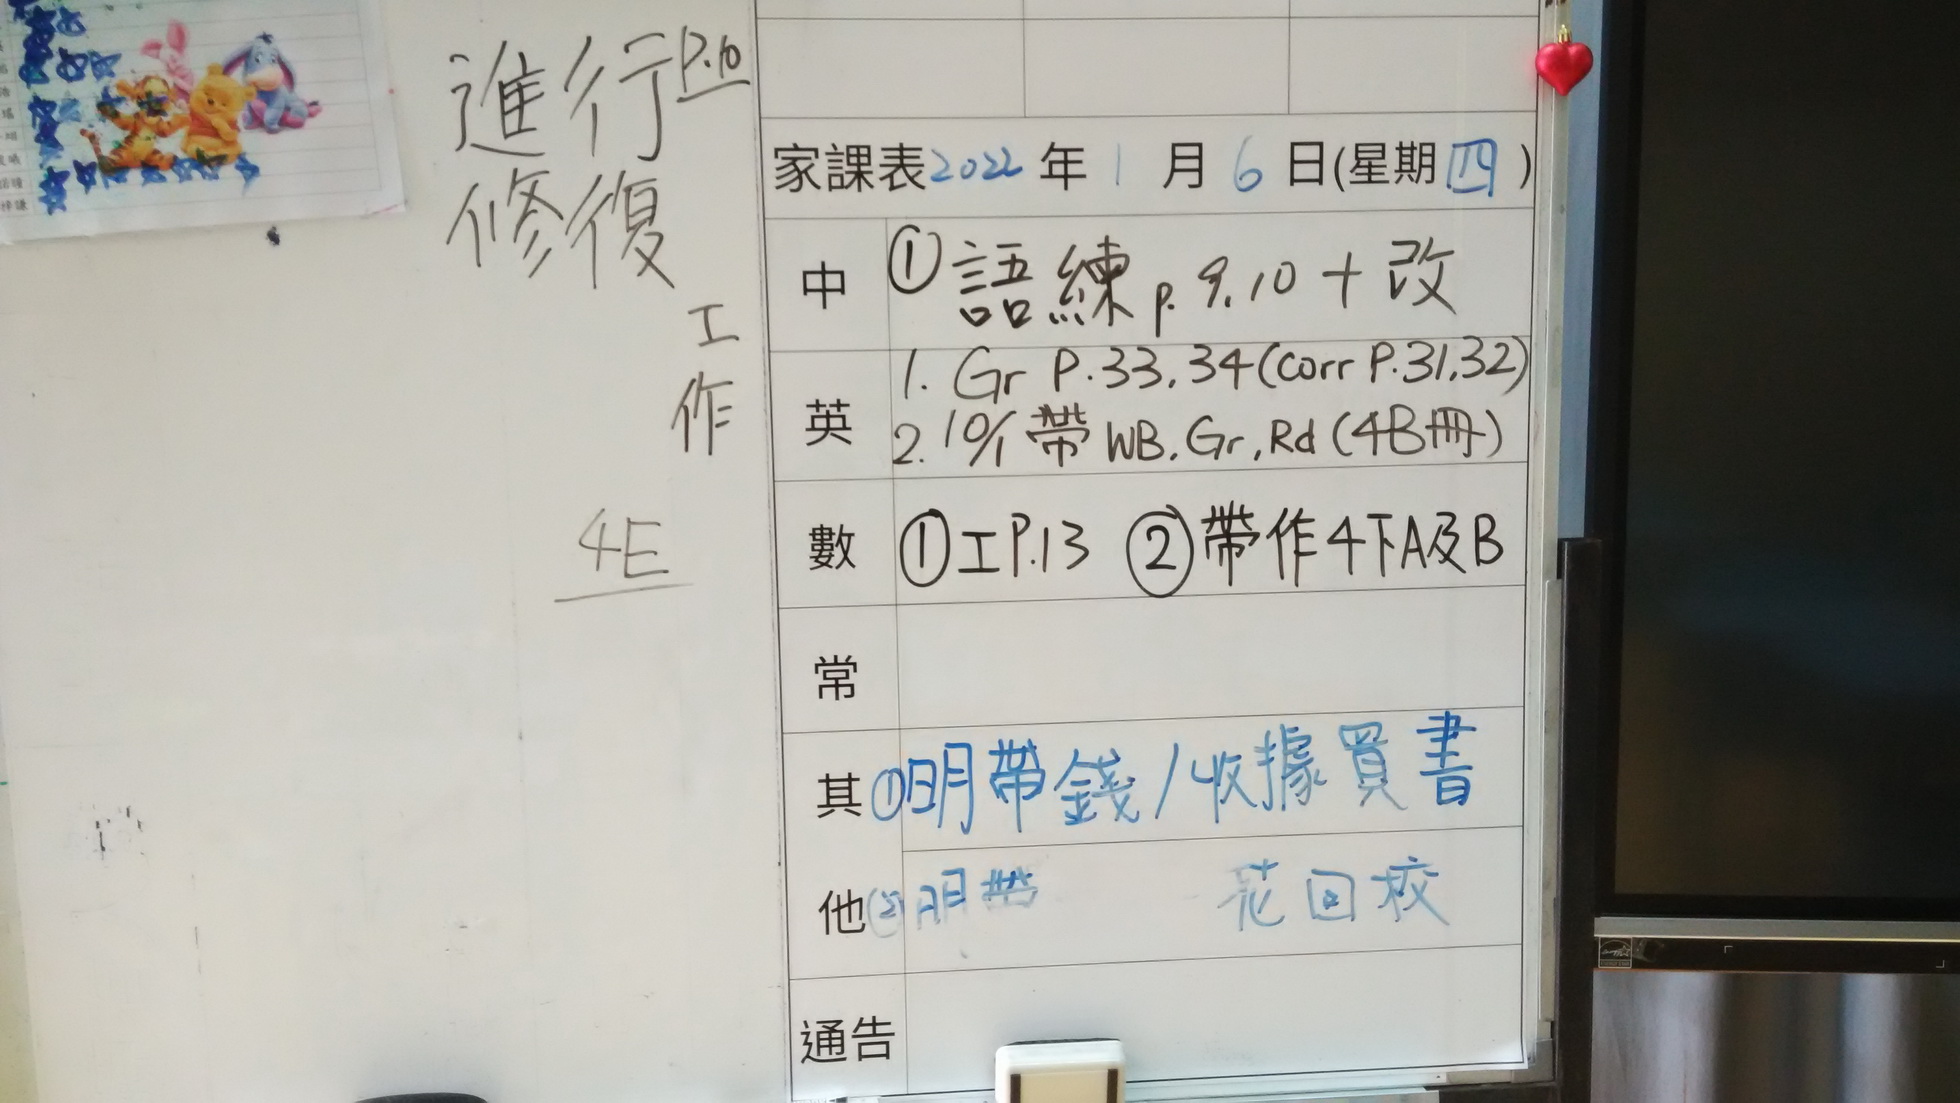 進行 P.10
修復
工
作
4E
家課表2022年1月6日(星期四)
中 ① 語練 p. 9,10 + 改
英 1. Gr P.33,34(corr P.31,32)
2. 10/1 帶 WB, Gr, Rd (4B冊)
數 ① 工P.13 ② 帶作4下A及B
常
其他 ① 明帶錢/收據買書
(2) 明帶 花回校
通告